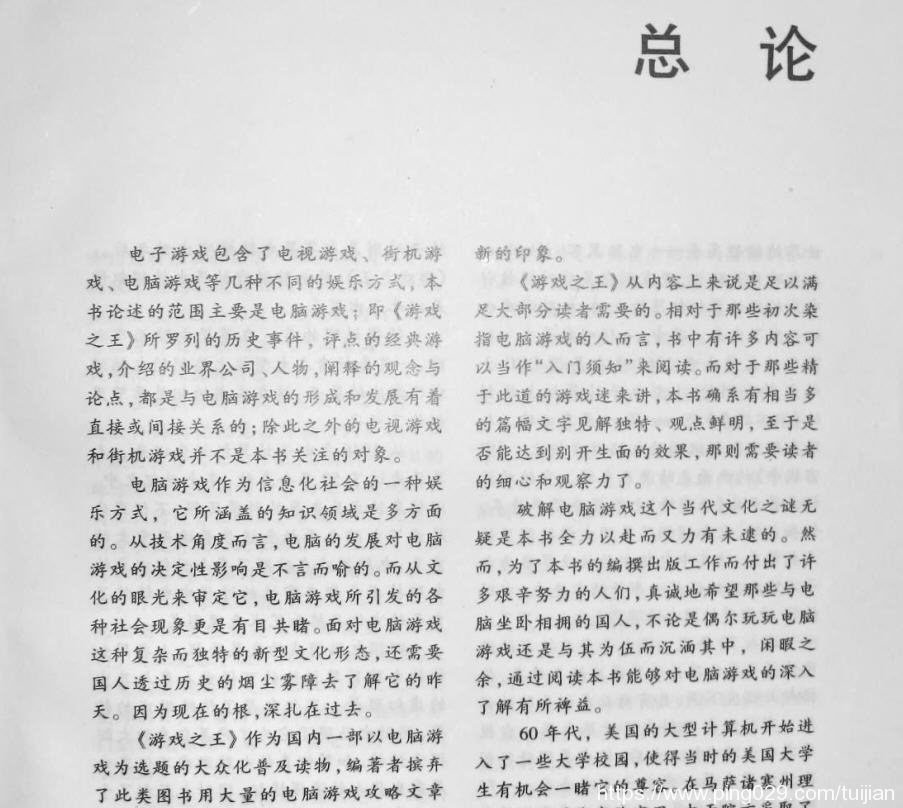 总 论
电子游戏包含了电视游戏、街机游
戏、电脑游戏等几种不同的娱乐方式，本
书论述的范围主要是电脑游戏；即《游戏
之王》所罗列的历史事件，评点的经典游
戏，介绍的业界公司、人物，阐释的观念与
论点，都是与电脑游戏的形成和发展有着
直接或间接关系的；除此之外的电视游戏
和街机游戏并不是本书关注的对象。
电脑游戏作为信息化社会的一种娱
乐方式，它所涵盖的知识领域是多方面
的。从技术角度而言，电脑的发展对电脑
游戏的决定性影响是不言而喻的。而从文
化的眼光来审定它，电脑游戏所引发的各
种社会现象更是有目共睹。面对电脑游戏
这种复杂而独特的新型文化形态，还需要
国人透过历史的烟尘雾障去了解它的昨
天。因为现在的根，深扎在过去。
《游戏之王》作为国内一部以电脑游
戏为选题的大众化普及读物，编著者摈弃
了此类图书用大量的电脑游戏攻略文章
新的印象。
《游戏之王》从内容上来说是足以满
足大部分读者需要的。相对于那些初次染
指电脑游戏的人而言，书中有许多内容可
以当作“入门须知”来阅读。而对于那些精
于此道的游戏迷来讲，本书确系有相当多
的篇幅文字见解独特、观点鲜明，至于是
否能达到别开生面的效果，那则需要读者
的细心和观察力了。
破解电脑游戏这个当代文化之谜无
疑是本书全力以赴而又力有未逮的。然
而，为了本书的编撰出版工作而付出了许
多艰辛努力的人们，真诚地希望那些与电
脑坐卧相拥的国人，不论是偶尔玩玩电脑
游戏还是与其为伍而沉湎其中，闲暇之
余，通过阅读本书能够对电脑游戏的深入
了解有所裨益。
60年代，美国的大型计算机开始进
入了一些大学校园，使得当时的美国大学
生有机会一睹它的尊容。在马萨诸塞州理
https://www.ping029.com/tuijian